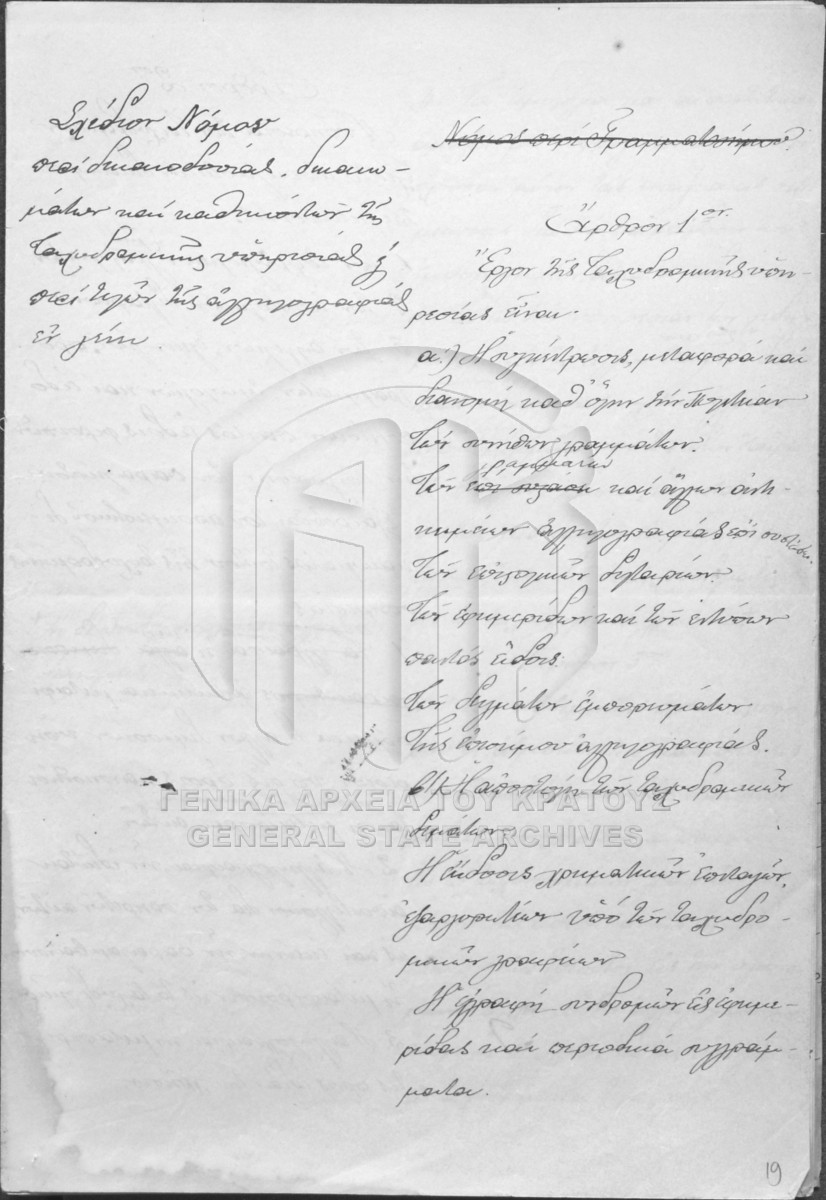 Σχέδιον Νόμου
περί δικαιοδοσίας, δικαιω-
μάτων καί καθηκόντων τῆς
ταχυδρομικῆς ὑπηρεσίας &
περί τελῶν τῆς ἀλληλογραφίας
ἐν γένει.
Νόμος περί Γραμματοσήμου
Ἄρθρον 1ον.
Ἔργον τῆς ταχυδρομικῆς ὑπη-
ρεσίας εἶναι.
α.) Ἡ συγκέντρωσις, μεταφορά καί
διανομή καθ' ὅλην τήν Πολιτείαν
τῶν συνήθων γραμμάτων.
γραμμάτων
τῶν ἐπί συστάσει καί ἄλλων ἀντι-
κειμένων ἀλληλογραφίας ἐπί συστάσει.
τῶν ἐπιστολικῶν δελταρίων.
τῶν ἐφημερίδων καί τῶν ἐντύπων
παντός εἴδους.
τῶν δειγμάτων ἐμπορευμάτων
τῆς ἐπισήμου ἀλληλογραφίας.
β) Ἡ ἀποστολή τῶν ταχυδρομικῶν
δεμάτων
Ἡ ἔκδοσις χρηματικῶν ἐπιταγῶν,
ἐξαργυρωτέων ὑπό τῶν ταχυδρο-
μικῶν γραφείων
Ἡ ἐγγραφή συνδρομῶν εἰς ἐφημε-
ρίδας καί περιοδικά συγγράμ-
ματα.
ΓΕΝΙΚΑ ΑΡΧΕΙΑ ΤΟΥ ΚΡΑΤΟΥΣ
GENERAL STATE ARCHIVES
19